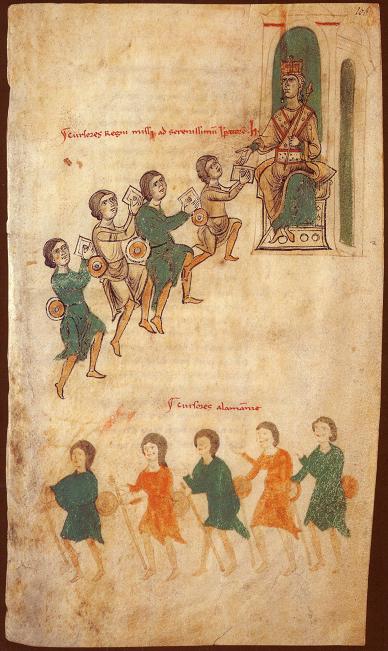 ¶ Cursores Regni missi ad serenissimū Ipatorē .h.
¶ Cursores alamānie